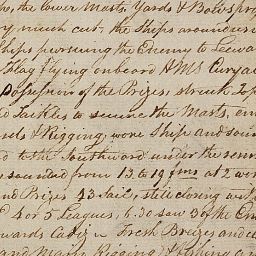 the lower Masts, Yards & Bowspr
ry much cut, the Ships around
Ships pursuing the Enemy to Leewa
Flag flying onboard HMS Eurya
Possession of the Prizes, struck
Tackles to secure the Masts, em
& Rigging, wore Ship and
to the Southward under the
sounded from 13 to 19 fms at 2 wore
Prizes 43 Sail, still closing
4 or 5 Leagues, 6.30 saw 3 of the
wards Cadiz Fresh Breezes and
Rigging &